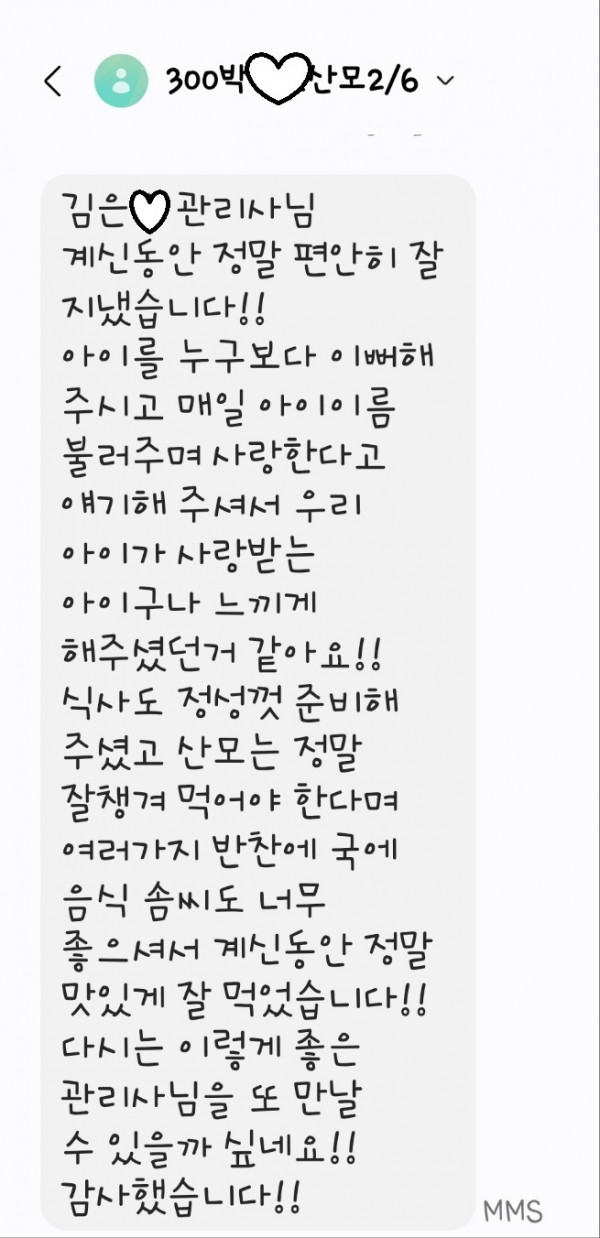 300박 산모2/6
김은 관리사님
계신동안 정말 편안히 잘
지냈습니다!!
아이를 누구보다 이뻐해
주시고 매일 아이이름
불러주며 사랑한다고
얘기해 주셔서 우리
아이가 사랑받는
아이구나 느끼게
해주셨던거 같아요!!
식사도 정성껏 준비해
주셨고 산모는 정말
잘챙겨 먹어야 한다며
여러가지 반찬에 국에
음식 솜씨도 너무
좋으셔서 계신동안 정말
맛있게 잘 먹었습니다!!
다시는 이렇게 좋은
관리사님을 또 만날
수 있을까 싶네요!!
감사했습니다!!
MMS